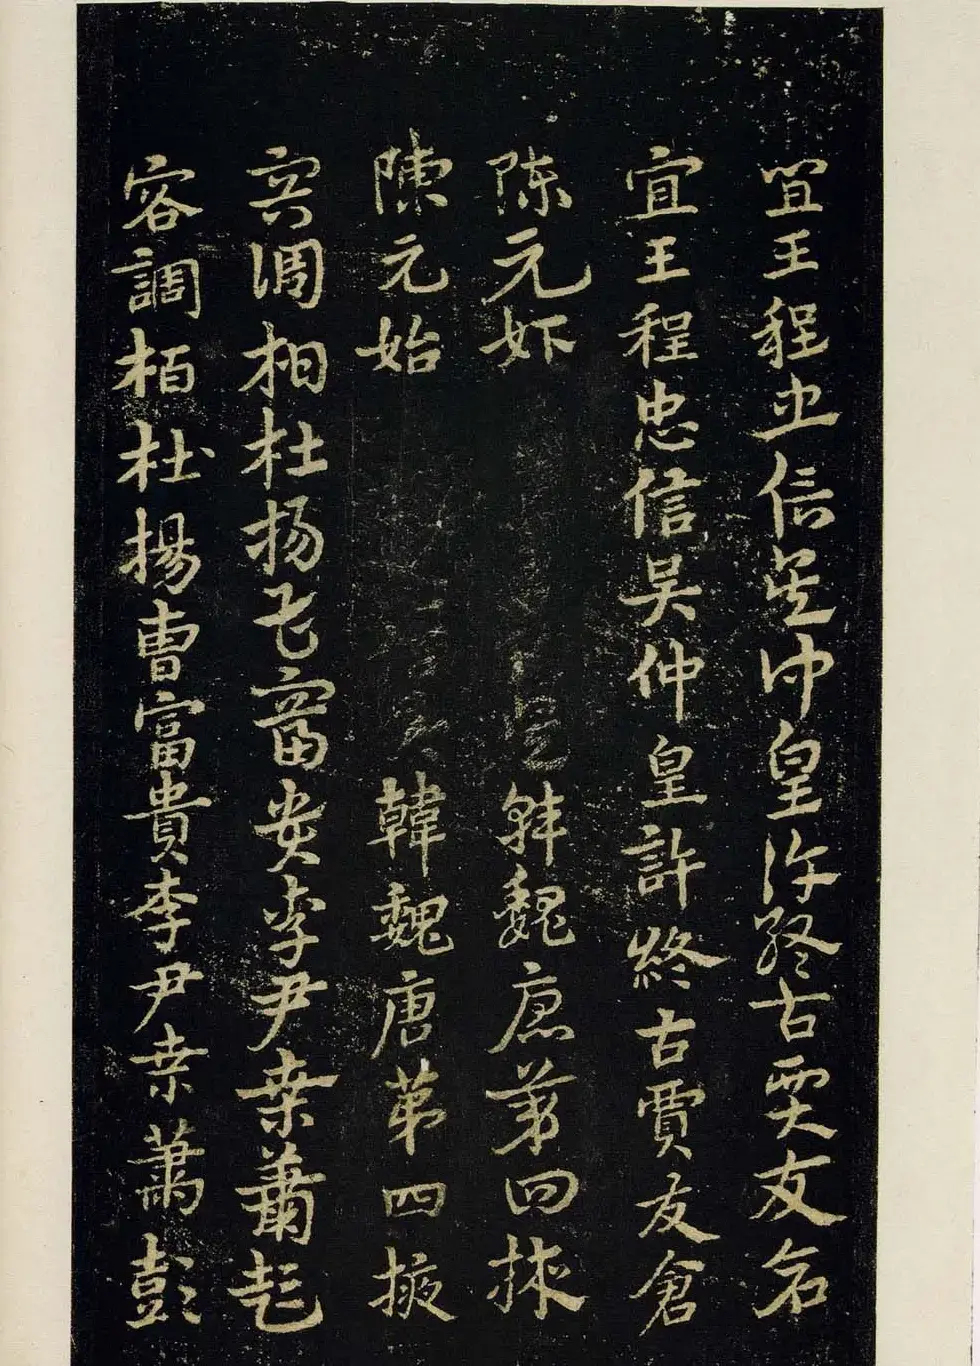 宜王程忠信吳仲皇許終古賈友倉
宜王程忠信吳仲皇許終古賈友倉
陳元始 韓魏唐第四掖
陳元始 韓魏唐第四掖
容調柏杜揚曹富貴李尹桒蕭彭
容調柏杜揚曹富貴李尹桒蕭彭